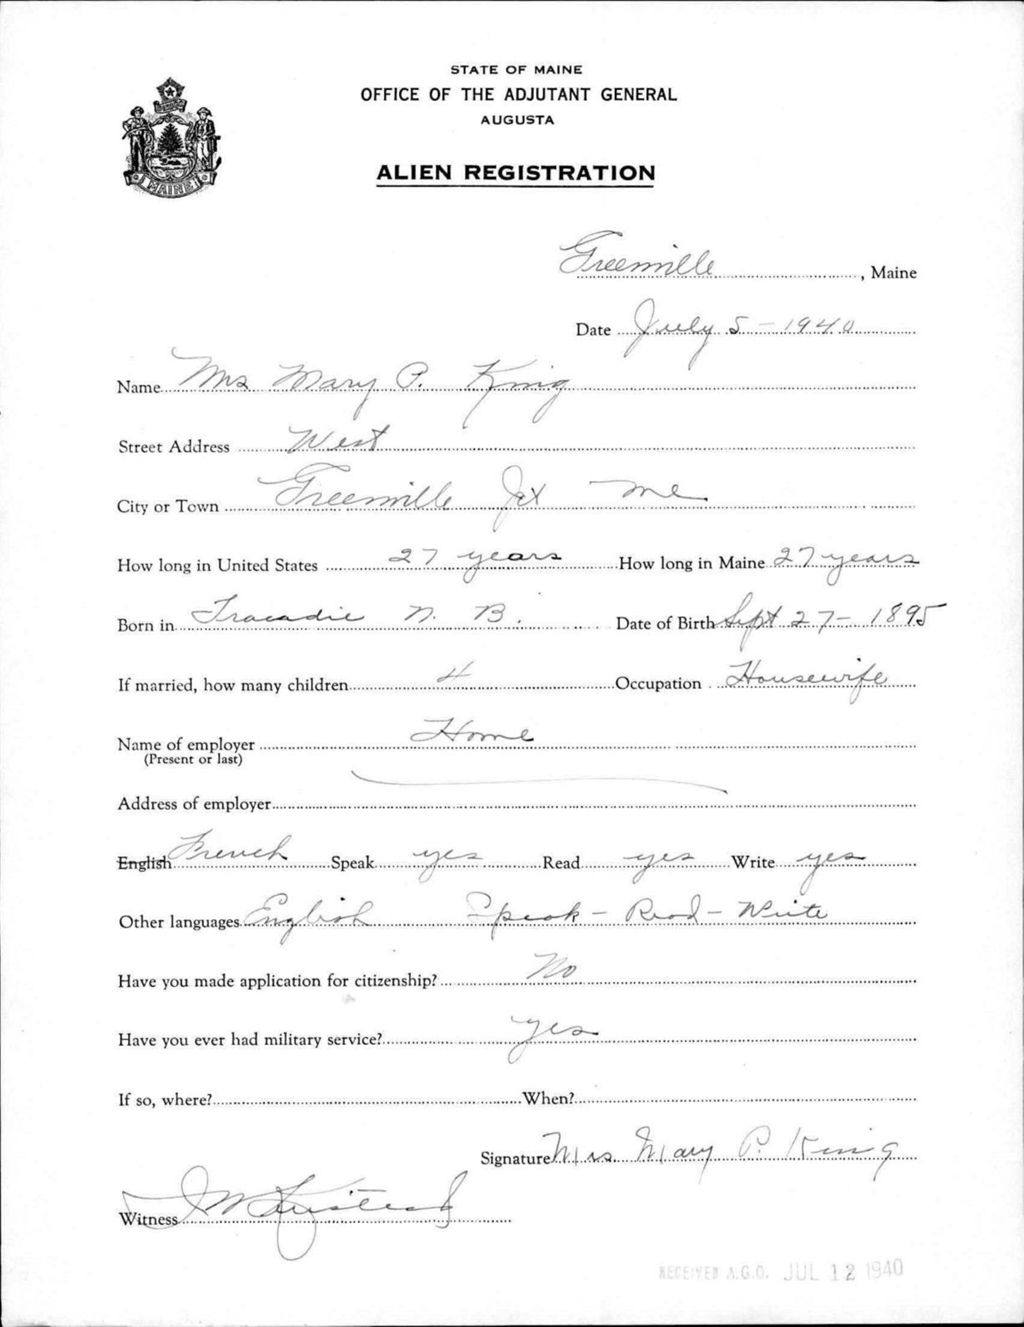 STATE OF MAINE
OFFICE OF THE ADJUTANT GENERAL
AUGUSTA
ALIEN REGISTRATION
MAINE
Greenville, Maine
Date July 5 - 1940
Name Mrs Mary P. King
Street Address West
City or Town Greenville Jct Me
How long in United States 27 years How long in Maine 27 years
Born in Tracadie N. B. Date of Birth Sept 27 - 1895
If married, how many children 4 Occupation Housewife
Name of employer Home
(Present or last)
Address of employer
English French Speak yes Read yes Write yes
Other languages English Speak - Read - Write
Have you made application for citizenship? No
Have you ever had military service? yes
If so, where? When?
Signature Mrs. Mary P. King
Witness
RECEIVED A.G.O. JUL 12 1940